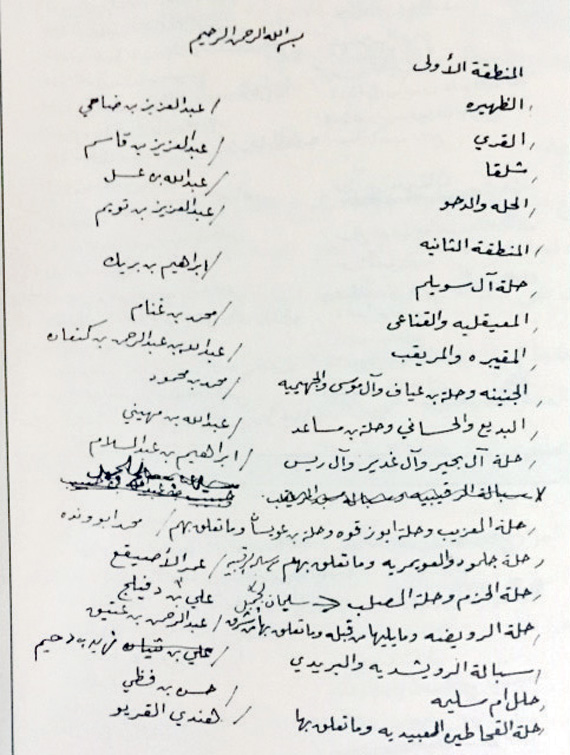 بسم الله الرحمن الرحيم
المنطقة الأولى
/ الظهيره / عبدالعزيز بن ضاحي
/ القري / عبدالعزيز بن قاسم
/ شلقا / عبدالله بن عسل
/ الحله والدحو / عبدالعزيز بن تويم
/ المنطقة الثانيه
/ حلة آل سويلم / ابراهيم بن بريك
/ المعيقليه والقناعى / محمد بن غنام
/ المقيبره والمريقب / عبدالله بن عبدالرحمن بن كنعان
/ الجنينه وحلة بن عياف وآل موسى والجهيميه / محمد بن محمود
/ البديع والحساني وحلة بن مساعد / عبدالله بن مهيني
/ حلة آل بحير وآل غدير وآل ريس / ابراهيم بن عبدالسلام
/ سبالة الرقيبيه
/ حلة العزيب وحلة ابوز قوه وحلة بن عويشا وما تعلق بهم / محمد ابو ونده
/ حلة جلموده والعويمريه وما تعلق بهم / عمر الأصيقع
/ حلة الحزم وحلة المصلب سليمان علي بن دفيلج
/ حلة الرويضه وما يليها من قبله وما تعلق بها من شرق / عبدالرحمن بن عتيق
/ سبالة الرويشديه والبريدي / علي بن فهيد بن دحيم
/ حلل ام سليم / حسن بن فظي
/ حلة القحاطين المعبيديه وما تعلق بها / هندي القريو